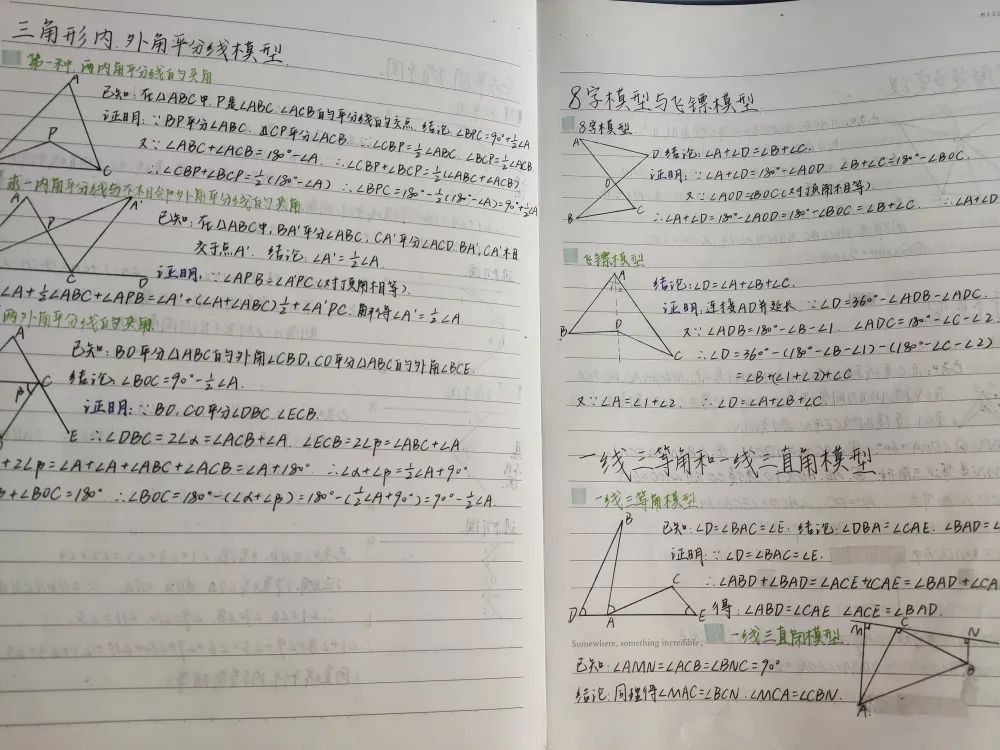 三角形内、外角平分线模型
第一种、两内角平分线的夹角
A
P
C
已知:在△ABC中,P是∠ABC、∠ACB的平分线的交点.结论:∠BPC=90°+½∠A
证明:∵BP平分∠ABC.且CP平分∠ACB.∴∠CBP=½∠ABC.∠BCP=½∠ACB.
又∵∠ABC+∠ACB=180°-∠A,∴∠CBP+∠BCP=½(∠ABC+∠ACB)
∴∠CBP+∠BCP=½(180°-∠A)∴∠BPC=180°-½(180°-∠A)=90°+½∠A
求一内角平分线与不相邻外角平分线的夹角
A
A'
P
C
D
已知:在△ABC中,BA'平分∠ABC,CA'平分∠ACD.BA',CA'相
交于点A'. 结论:∠A'=½∠A.
证明:∵∠APB=∠A'PC(对顶角相等).
∠A+½∠ABC+∠APB=∠A'+(∠A+∠ABC)½+∠A'PC.解得∠A'=½∠A.
两外角平分线的夹角
A
C
β
E
已知:BO平分△ABC的外角∠CBD,CO平分△ABC的外角∠BCE.
结论:∠BOC=90°-½∠A.
证明:∵BO,CO平分∠DBC.∠ECB.
∴∠DBC=2∠α=∠ACB+∠A.∠ECB=2∠β=∠ABC+∠A.
+2∠β=∠A+∠A+∠ABC+∠ACB=∠A+180° ∴∠α+∠β=½∠A+90°.
+∠BOC=180° ∴∠BOC=180°-(∠α+∠β)=180°-(½∠A+90°)=90°-½∠A.
8字模型与飞镖模型
8字模型
A
D
O
B
C
结论:∠A+∠D=∠B+∠C.
证明:∵∠A+∠D=180°-∠AOD.∠B+∠C=180°-∠BOC.
又∵∠AOD=∠BOC(对顶角相等).
∴∠A+∠D=180°-∠AOD=180°-∠BOC=∠B+∠C. ∴∠A+∠D
飞镖模型
A
B
D
C
结论:∠D=∠A+∠B+∠C.
证明:连接AD并延长 ∵∠D=360°-∠ADB-∠ADC.
又∵∠ADB=180°-∠B-∠1. ∠ADC=180°-∠C-∠2.
∴∠D=360°-(180°-∠B-∠1)-(180°-∠C-∠2)
=∠B+(∠1+∠2)+∠C
又∵∠A=∠1+∠2. ∴∠D=∠A+∠B+∠C
一线三等角和一线三直角模型
一线三等角模型
B
C
D
A
E
已知:∠D=∠BAC=∠E. 结论:∠DBA=∠CAE.∠BAD=∠
证明:∵∠D=∠BAC=∠E.
∴∠ABD+∠BAD=∠ACE+∠CAE=∠BAD+∠CA
得:∠ABD=∠CAE ∠ACE=∠BAD.
Somewhere, something incredible,
一线三直角模型
M
C
N
B
A
已知:∠AMN=∠ACB=∠BNC=90°
结论:同理得∠MAC=∠BCN.∠MCA=∠CBN.